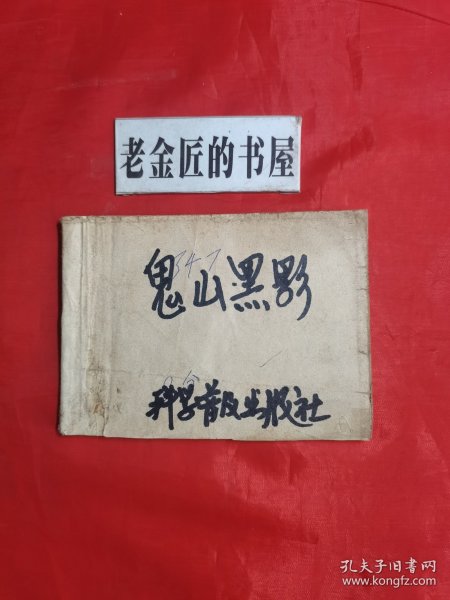 老金匠的书屋
鬼山黑影
347
科学普及出版社
孔夫子旧书网
www.kongfz.com